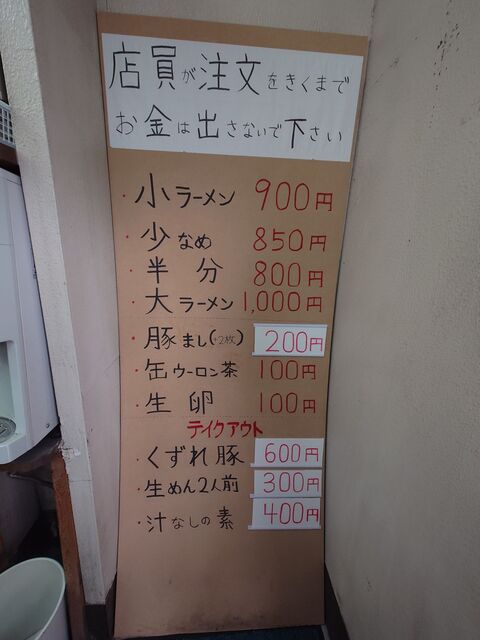 店員が注文をきくまで
お金は出さないで下さい
・小ラーメン 900円
・少なめ 850円
・半分 800円
・大ラーメン 1,000円
・豚まし(+2枚) 200円
・缶ウーロン茶 100円
・生卵 100円
テイクアウト
・くずれ豚 600円
・生めん2人前 300円
・汁なしの素 400円